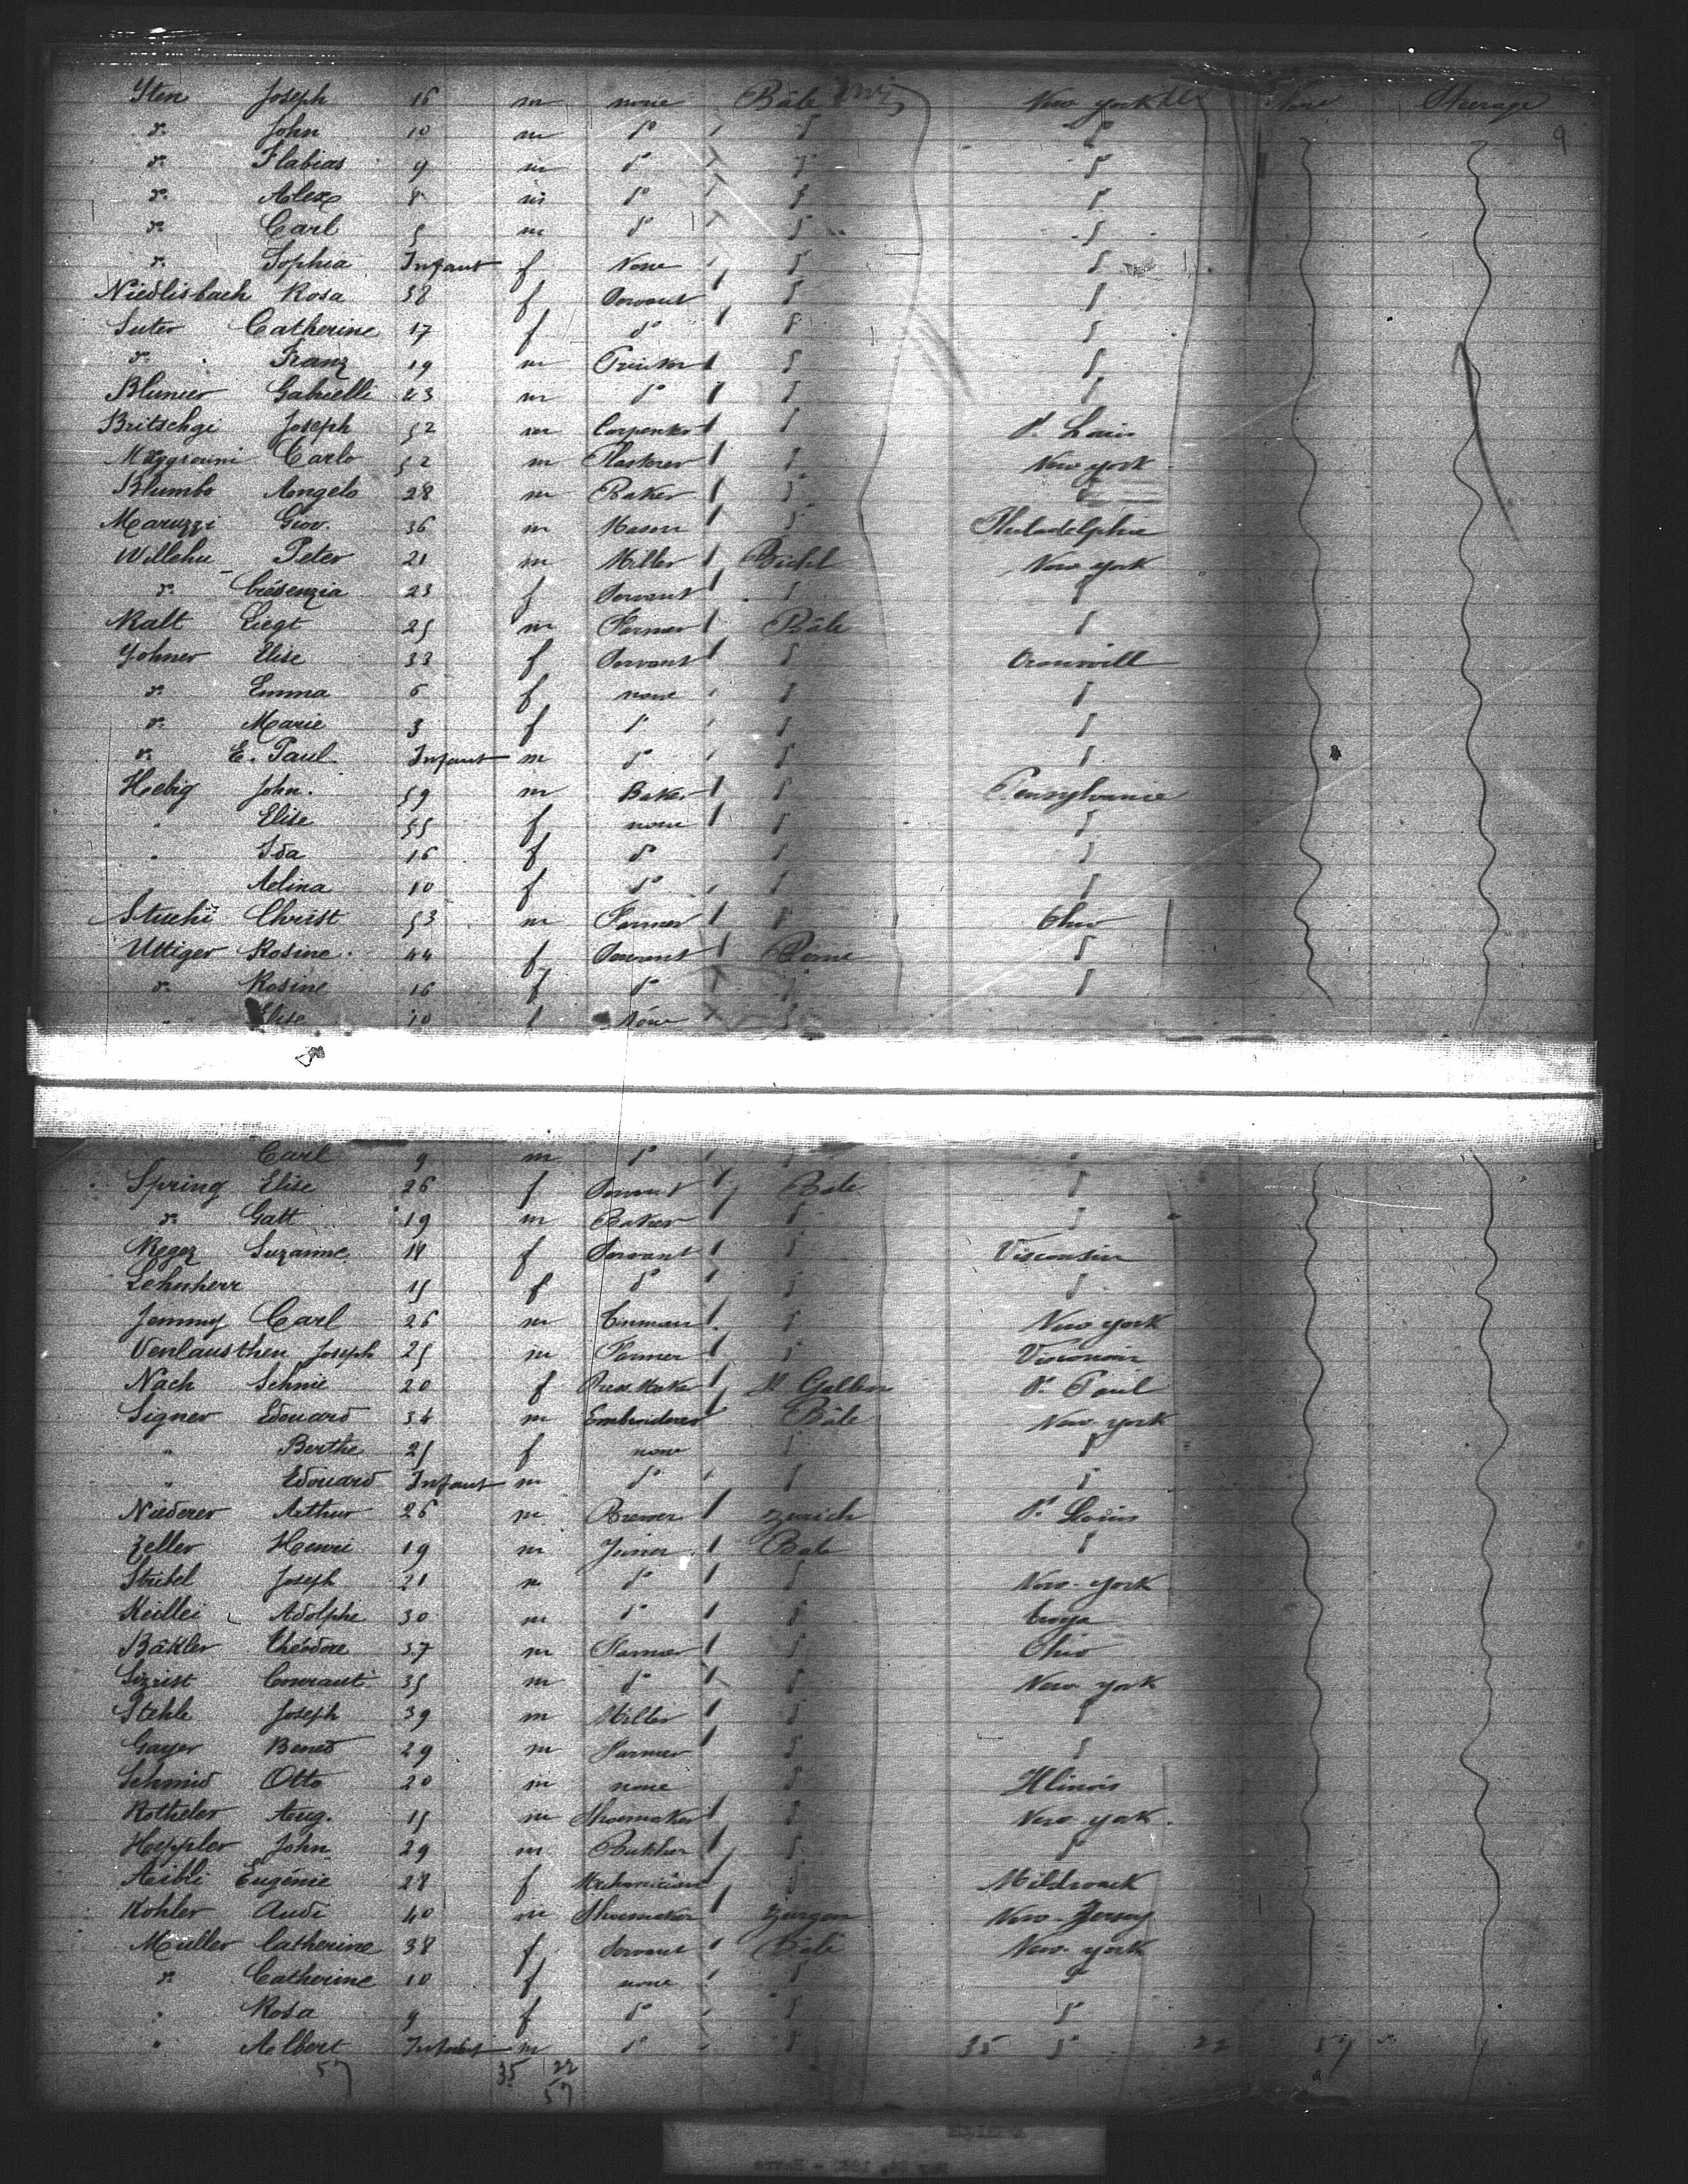 Sten Joseph 16 m none Bâle New York None Steerage
9
d° John 10 m d° d° d°
d° Flabias 9 m d° d° d°
d° Alex 8 m d° d° d°
d° Carl 5 m d° d° d°
d° Sophia Infant f None d° d°
Niedlisbach Rosa 38 f Servant d° d°
Suter Catherine 17 f d° d° d°
d° Franz 19 m d° d°
Blumer Gabrielli 23 m d° d° d°
Britschgi Joseph 52 m Carpenter d° St Louis
Carlo 52 m Plasterer d° New York
Blumbo Angelo 28 m Baker d° d°
Maruzzi Giov. 36 m Mason d° Philadelphie
Willehu Peter 21 m Miller New York
d° Crésenzia 23 f Servant d° d°
Kalt Liegt 25 m Farmer Bâle d°
Yohner Elise 33 f Servant d°
d° Emma 6 f none d° d°
d° Marie 3 f d° d° d°
d° E. Paul Infant m d° d° d°
Hebig John. 59 m Baker d° Pensylvanie
" Elise 55 f none d° d°
" Ida 16 f d° d° d°
Aelina 10 f d° d° d°
Stuehi Christ 53 m Farmer d° Ohio
Uttiger Rosine 44 f Servant Berne d°
d° Rosine 16 f d° d° d°
" Elise 10 f None d°
Carl 9 m d° d° d°
Spring Elise 26 f Servant Bale d°
d° Gatt 19 m Baker d° d°
Regez Suzanne 14 f Servant d° Visconsin
Lehnherr 15 f d° d° d°
Jemmy Carl 26 m Tinman d° New York
Venlausthen Joseph 25 m Farmer d° Visconsin
Nach Schnie 20 f Dress Maker St Gallen St Paul
Signer Edouard 34 m Embroiderer Bâle New York
" Berthe 25 f none d° d°
" Edouard Infant m d° d° d°
Niederer Arthur 26 m Brewer Zurich St Louis
Zeller Henri 19 m Joiner Bale d°
Stribel Joseph 21 m d° d° New York
Keillei Adolphe 30 m d° d° Troya
Bäkler Théodore 37 m Farmer d° Ohio
Sizrist Conraut 35 m d° d° New York
Stehle Joseph 39 m Miller d° d°
Gayer Bened 29 m Farmer d° d°
Schmid Otto 20 m none d° Illinois
Rotheler Aug. 15 m Shoemaker d° New York
Heppler John 29 m Butcher d° d°
Aeibli Eugénie 28 f Mechanician d° Mildwauk
Kohler Audi 40 m Shoemaker New-Jersey
Muller Catherine 38 f Servant Bâle New York
d° Catherine 10 f none d° d°
" Rosa 9 f d° d° d°
" Albert Infant m d° d° 35 d° 22 57
57 35 22
57